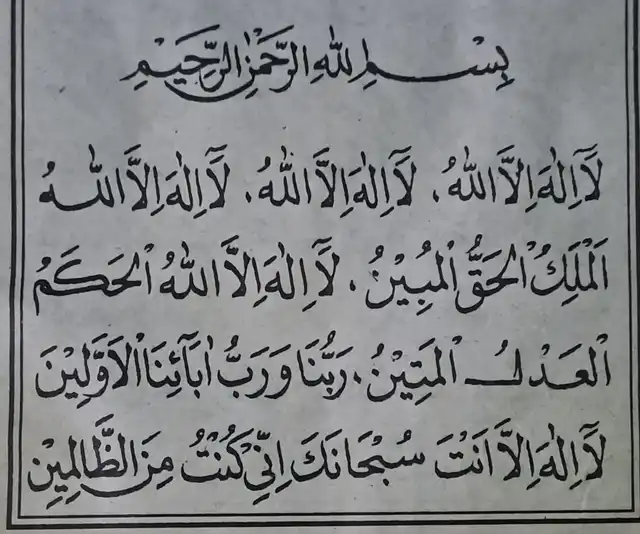 بِسْمِ اللهِ الرَّحْمٰنِ الرَّحِيْمِ
لَآ اِلٰهَ اِلَّا اللّٰهُ، لَآ اِلٰهَ اِلَّا اللّٰهُ، لَآ اِلٰهَ اِلَّا اللّٰهُ
اَلْمَلِكُ الْحَقُّ الْمُبِيْنُ، لَآ اِلٰهَ اِلَّا اللّٰهُ الْحَكَمُ
الْعَدْلُ الْمَتِيْنُ، رَبُّنَا وَرَبُّ اٰبَآئِنَا الْاَوَّلِيْنَ
لَآ اِلٰهَ اِلَّا اَنْتَ سُبْحَانَكَ اِنِّيْ كُنْتُ مِنَ الظَّالِمِيْنَ